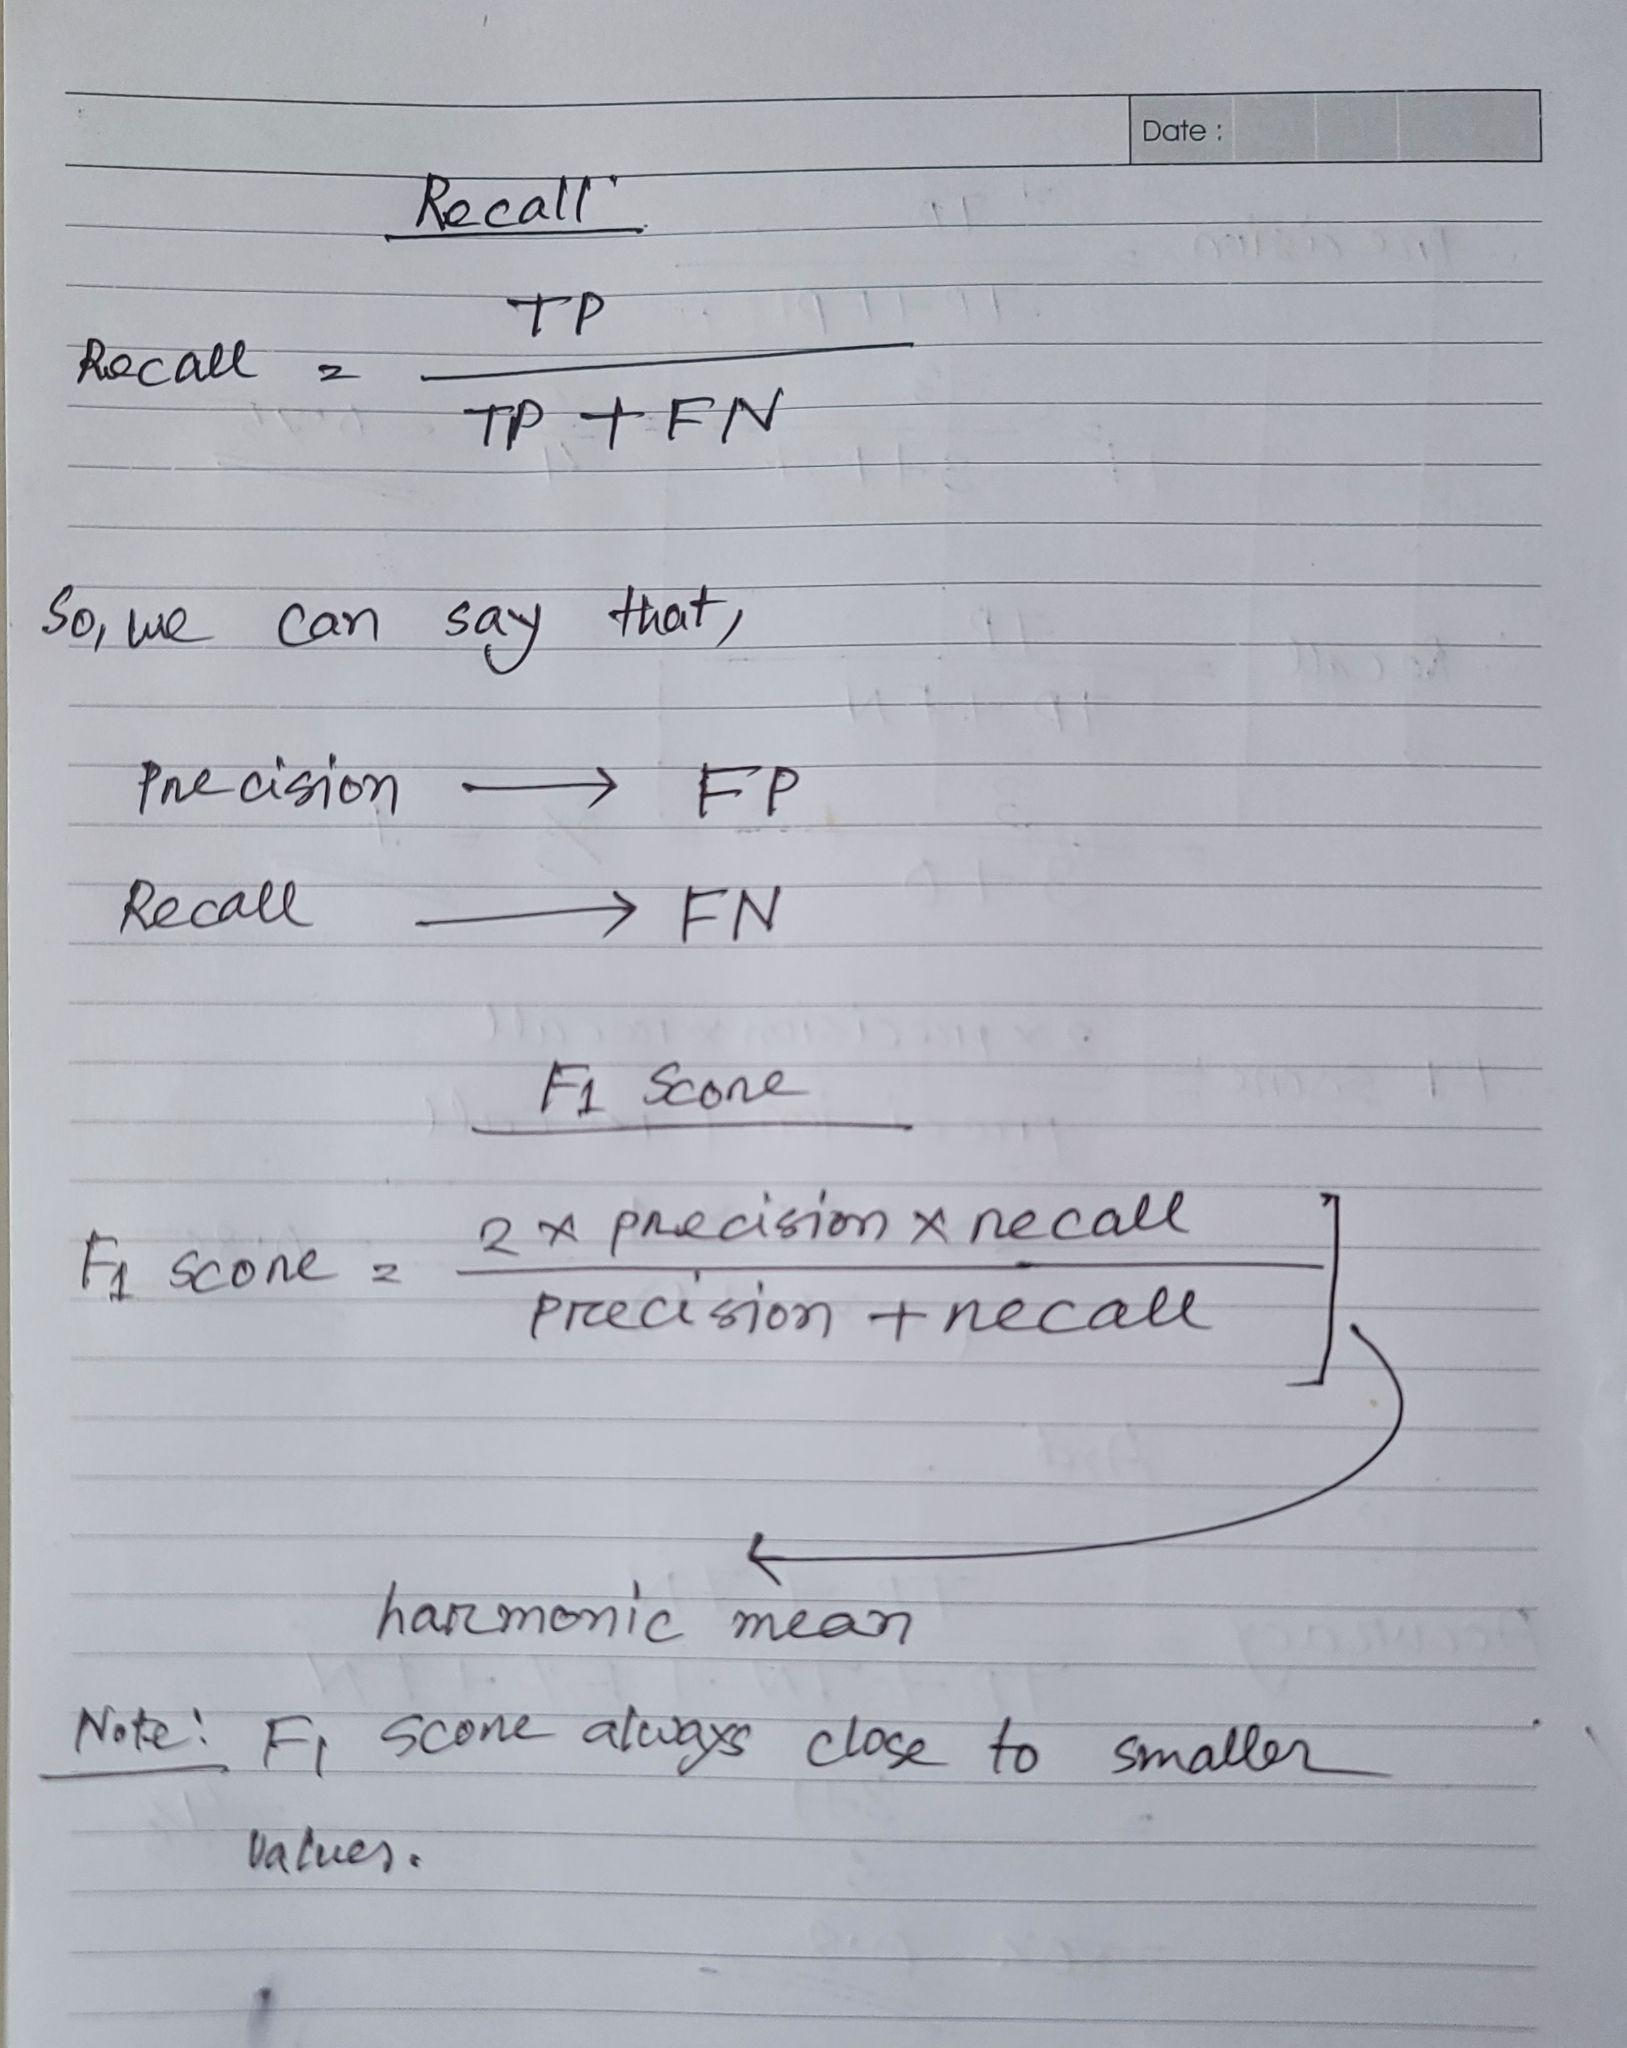 Date :
Recall
Recall = TP / TP + FN
So, we can say that,
Precision → FP
Recall → FN
F1 Score
F1 score = 2 x precision x recall / precision + recall
harmonic mean
Note: F1 score always close to smaller
values.